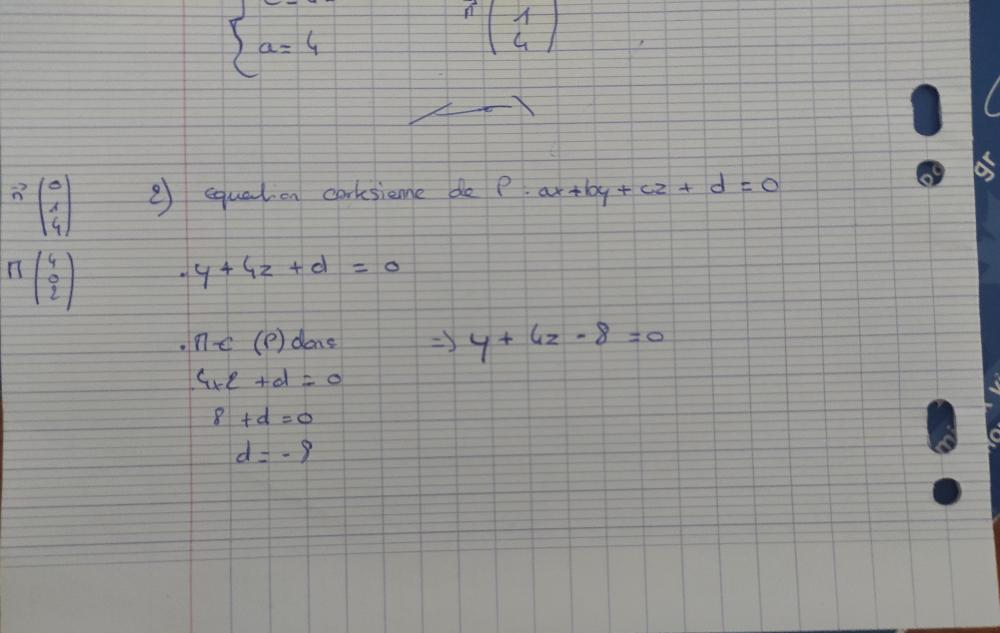 a = 4
n⃗ ( 1 4 )
n⃗ ( 0 1 4 )
2) equation cartesienne de P. ax+by+cz+d=0
M ( 4 0 2 )
. y + 4z + d = 0
. M ∈ (P) donc ⇒ y + 4z - 8 = 0
4x2 + d = 0
8 + d = 0
d = -8
gr